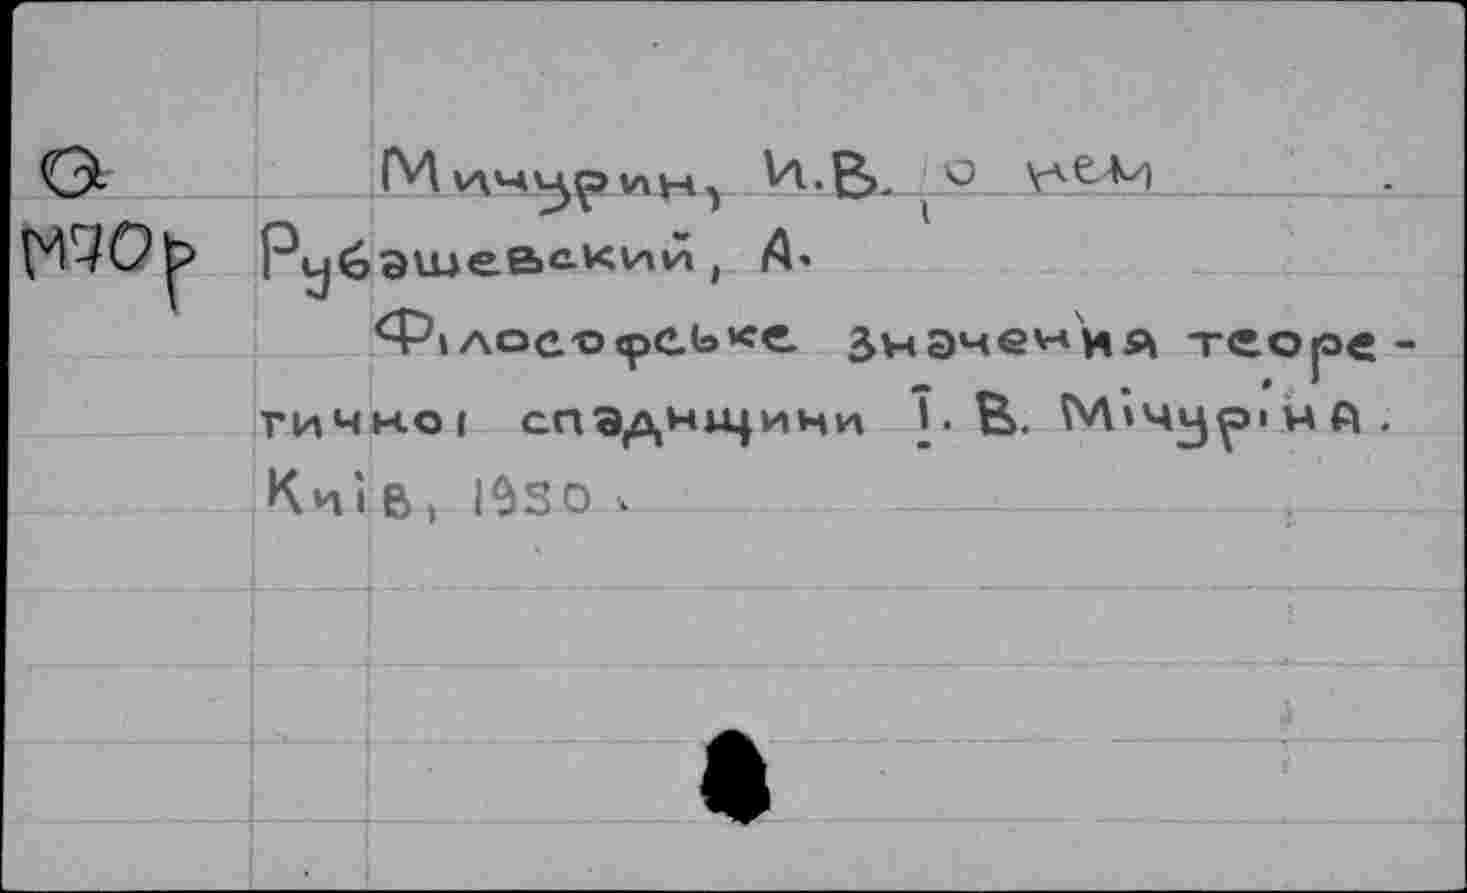 Мичурин, И.В., о нем
Рубашевский, А.
Філософське значення теоре-
тичної спадщини І. В. Мічуріна.
Київ, 1950.